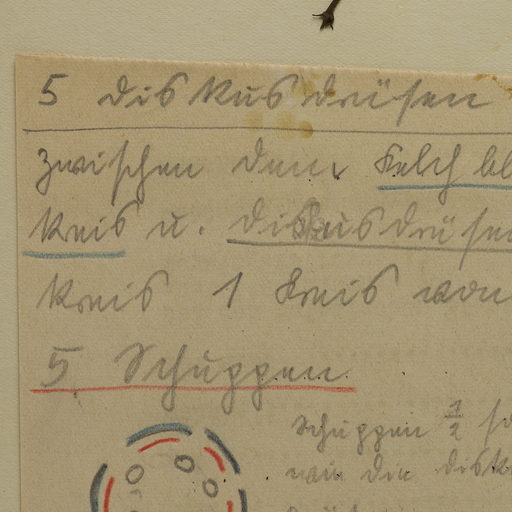 5 Diskusdrüsen
zwischen dem Kelchbl
kreis u. Diskusdrüsen
kreis 1 Kreis von
5 Schuppen
Schuppen ½ so
wie die Disk